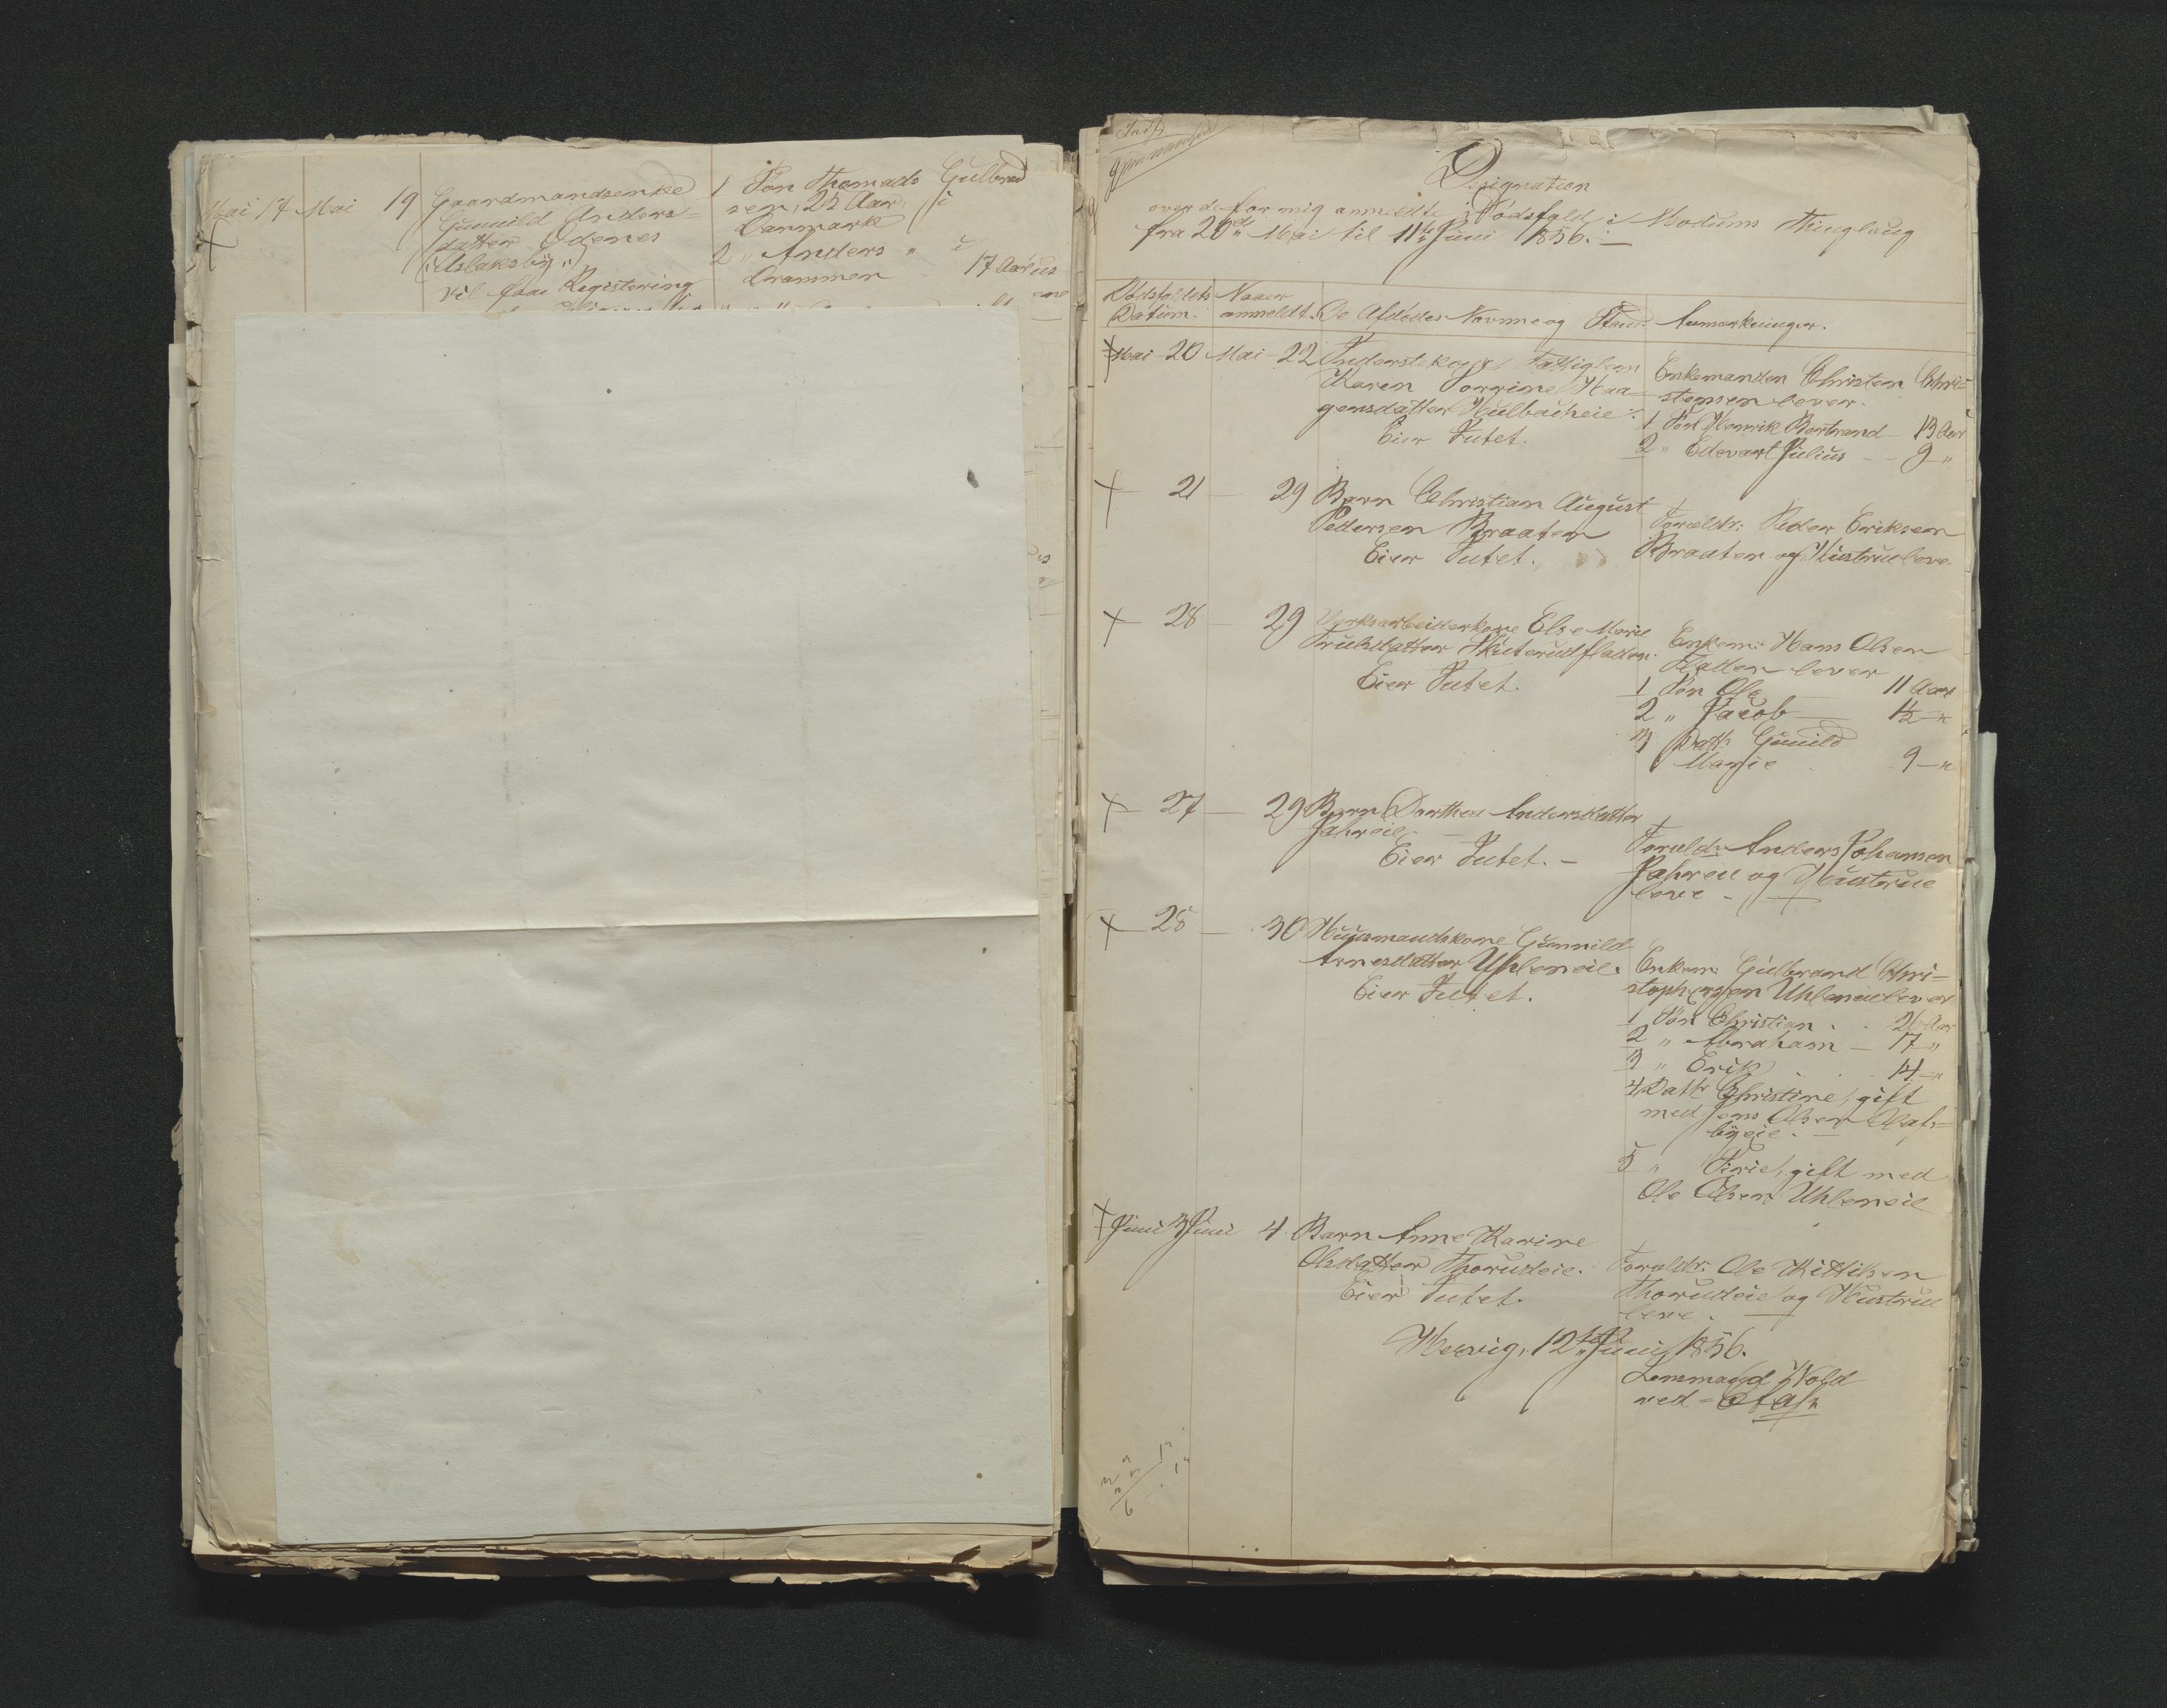 Mai 17 Mai 19 Gaardmandsenke
Gunild Anders-
datter Ødenes
(Aslaksby)
vil faae Registering
1 Søn Thomas Gulbrand
sen, 23 Aar, i
Danmark
2 " Anders " i
Drammen 17 Aar
Designation
over de for mig anmeldte Dødsfald i Modums Thinglaug
fra 20de Mai til 11te Juni 1856. —
Dødsfaldets Datum. Naar anmeldt. De Afdødes Navnne og Stand. Anmærkninger.
Mai 20 Mai 22 Inderstekone
Karen Jorgine Haa-
gensdatter Hulbakeie
Eier Intet.
Enkemanden Christen Chri-
stensen lever.
1 Søn Henrik Bertrand 13 Aar
2 " Edevart Julius - - 9 "
21 — 29 Barn Christian August
Pedersen Braaten
Eier Intet.
Foreældr: Peder Eriksen
Braaten og Hustrue leve
28 — 29 Værksarbeiderkone Else Marie
Trulsdatter Skuterudflaten.
Eier Intet.
Enkem: Hans Olsen
Flatten lever
1 Søn Ole 11 Aar
2 " Jacob — 1½ — "
3 Datt: Gunild
Marie 9 — "
27 — 29 Barn Dorthea Andersdatter
Jahreie. —
Eier Intet. —
Foræld: Anders Johansen
Jahreie og Hustrue
leve —
28 — 30 Huusmandskone Gunnild
Arnesdatter Uhleneie.
Eier Intet.
Enkem: Gulbrand Chri-
stophersen Uhleneie lever
1 Søn Christian . . 21 Aar
2 " Abraham — 17 "
3 " Erik 14 — "
4 Datt: Christine, gift
med Jens Olsen
byeie. —
5 " Sirie, gift med
Ole Olsen Uhleneie
Juni 3 Juni 4 Barn Anne Karine
Olsdatter Thorudeie.
Eier Intet.
Foræeldr: Ole Kittilsen
Thorudeie og Hustrue
leve. —
Hervig, 12te Juni 1856.
Lensmand Wold
ved